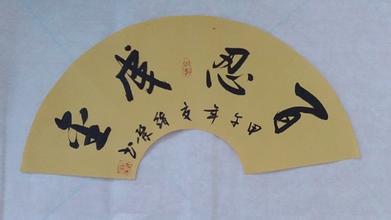 百忍成金
甲午年夏